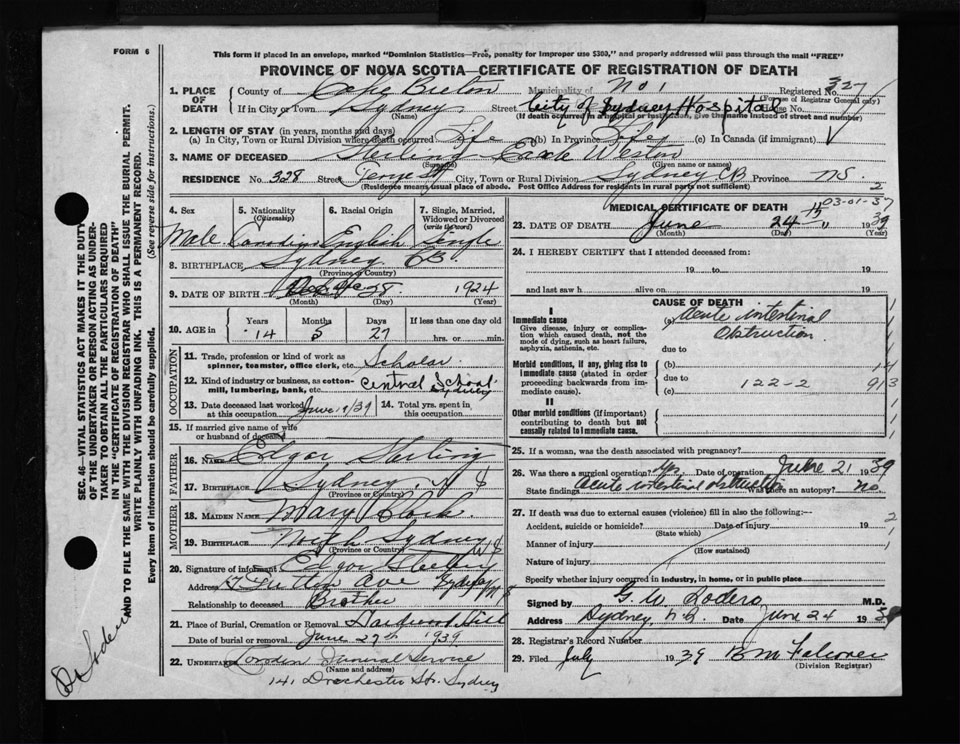 FORM 6
This form if placed in an envelope, marked "Dominion Statistics—Free, penalty for improper use $300," and properly addressed will pass through the mail "FREE"
PROVINCE OF NOVA SCOTIA—CERTIFICATE OF REGISTRATION OF DEATH
1. PLACE OF DEATH County of Cape Breton Municipality of No 1 Registered No. 327
(For use of Registrar General only)
If in City or Town Sydney Street City of Sydney Hospital House No.
(Name) (If death occurred in a hospital or institution, give the name instead of street and number)
2. LENGTH OF STAY (in years, months and days)
(a) In City, Town or Rural Division where death occurred Life (b) In Province Life (c) In Canada (if immigrant)
3. NAME OF DECEASED Sterling Earle Weston
(Surname) (Given name or names)
RESIDENCE No. 328 Street George St City, Town or Rural Division Sydney CB Province NS
(Residence means usual place of abode. Post Office Address for residents in rural parts not sufficient) 2
4. Sex 5. Nationality (Citizenship) 6. Racial Origin 7. Single, Married, Widowed or Divorced (write the word)
Male Canadian English Single
8. BIRTHPLACE Sydney CB.
(Province or Country)
9. DATE OF BIRTH 28 1924
(Month) (Day) (Year)
10. AGE in Years Months Days If less than one day old
14 5 27 hrs. or min.
OCCUPATION
11. Trade, profession or kind of work as spinner, teamster, office clerk, etc. Scholar
12. Kind of industry or business, as cotton-mill, lumbering, bank, etc. Central School Sydney
13. Date deceased last worked at this occupation June 1/39 14. Total yrs. spent in this occupation
15. If married give name of wife or husband of deceased
FATHER
16. NAME Edgar Sterling
17. BIRTHPLACE Sydney, N S
(Province or Country)
MOTHER
18. MAIDEN NAME Mary Clark
19. BIRTHPLACE North Sydney NS
(Province or Country)
20. Signature of informant Edgar Sterling
Address Ave Sydney NS
Relationship to deceased Brother
21. Place of Burial, Cremation or Removal Hardwood Hill
Date of burial or removal June 27th 1939
22. UNDERTAKER Funeral Service
(Name and address)
141 Dorchester Str. Sydney
MEDICAL CERTIFICATE OF DEATH 03-01-37
23. DATE OF DEATH June 24th 1939
(Month) (Day) (Year)
24. I HEREBY CERTIFY that I attended deceased from:
19 to 19
and last saw h alive on 19
CAUSE OF DEATH
I
Immediate cause (a) Acute intestinal obstruction
Give disease, injury or complication which caused death, not the mode of dying, such as heart failure, asphyxia, asthenia, etc.
due to
Morbid conditions, if any, giving rise to immediate cause (stated in order proceeding backwards from immediate cause). (b)
due to 122-2
(c)
II
Other morbid conditions (if important) contributing to death but not causally related to immediate cause.
25. If a woman, was the death associated with pregnancy?
26. Was there a surgical operation? Yes Date of operation June 21 1939
State findings Acute intestinal obstruction Was there an autopsy? no
27. If death was due to external causes (violence) fill in also the following:—
Accident, suicide or homicide? Date of injury 19
(State which)
Manner of injury
(How sustained)
Nature of injury
Specify whether injury occurred in industry, in home, or in public place
Signed by G. W Sodero M.D.
Address Sydney, N.S. Date June 24 1939
28. Registrar's Record Number
29. Filed July 1939 B M Falconer
(Division Registrar)
SEC. 46—VITAL STATISTICS ACT MAKES IT THE DUTY OF THE UNDERTAKER OR PERSON ACTING AS UNDERTAKER TO OBTAIN ALL THE PARTICULARS REQUIRED IN THE "CERTIFICATE OF REGISTRATION OF DEATH" AND TO FILE THE SAME WITH THE DIVISION REGISTRAR WHO SHALL ISSUE THE BURIAL PERMIT.
WRITE PLAINLY WITH UNFADING INK. THIS IS A PERMANENT RECORD.
Every item of Information should be carefully supplied. (See reverse side for instructions.)
Dr Sodero